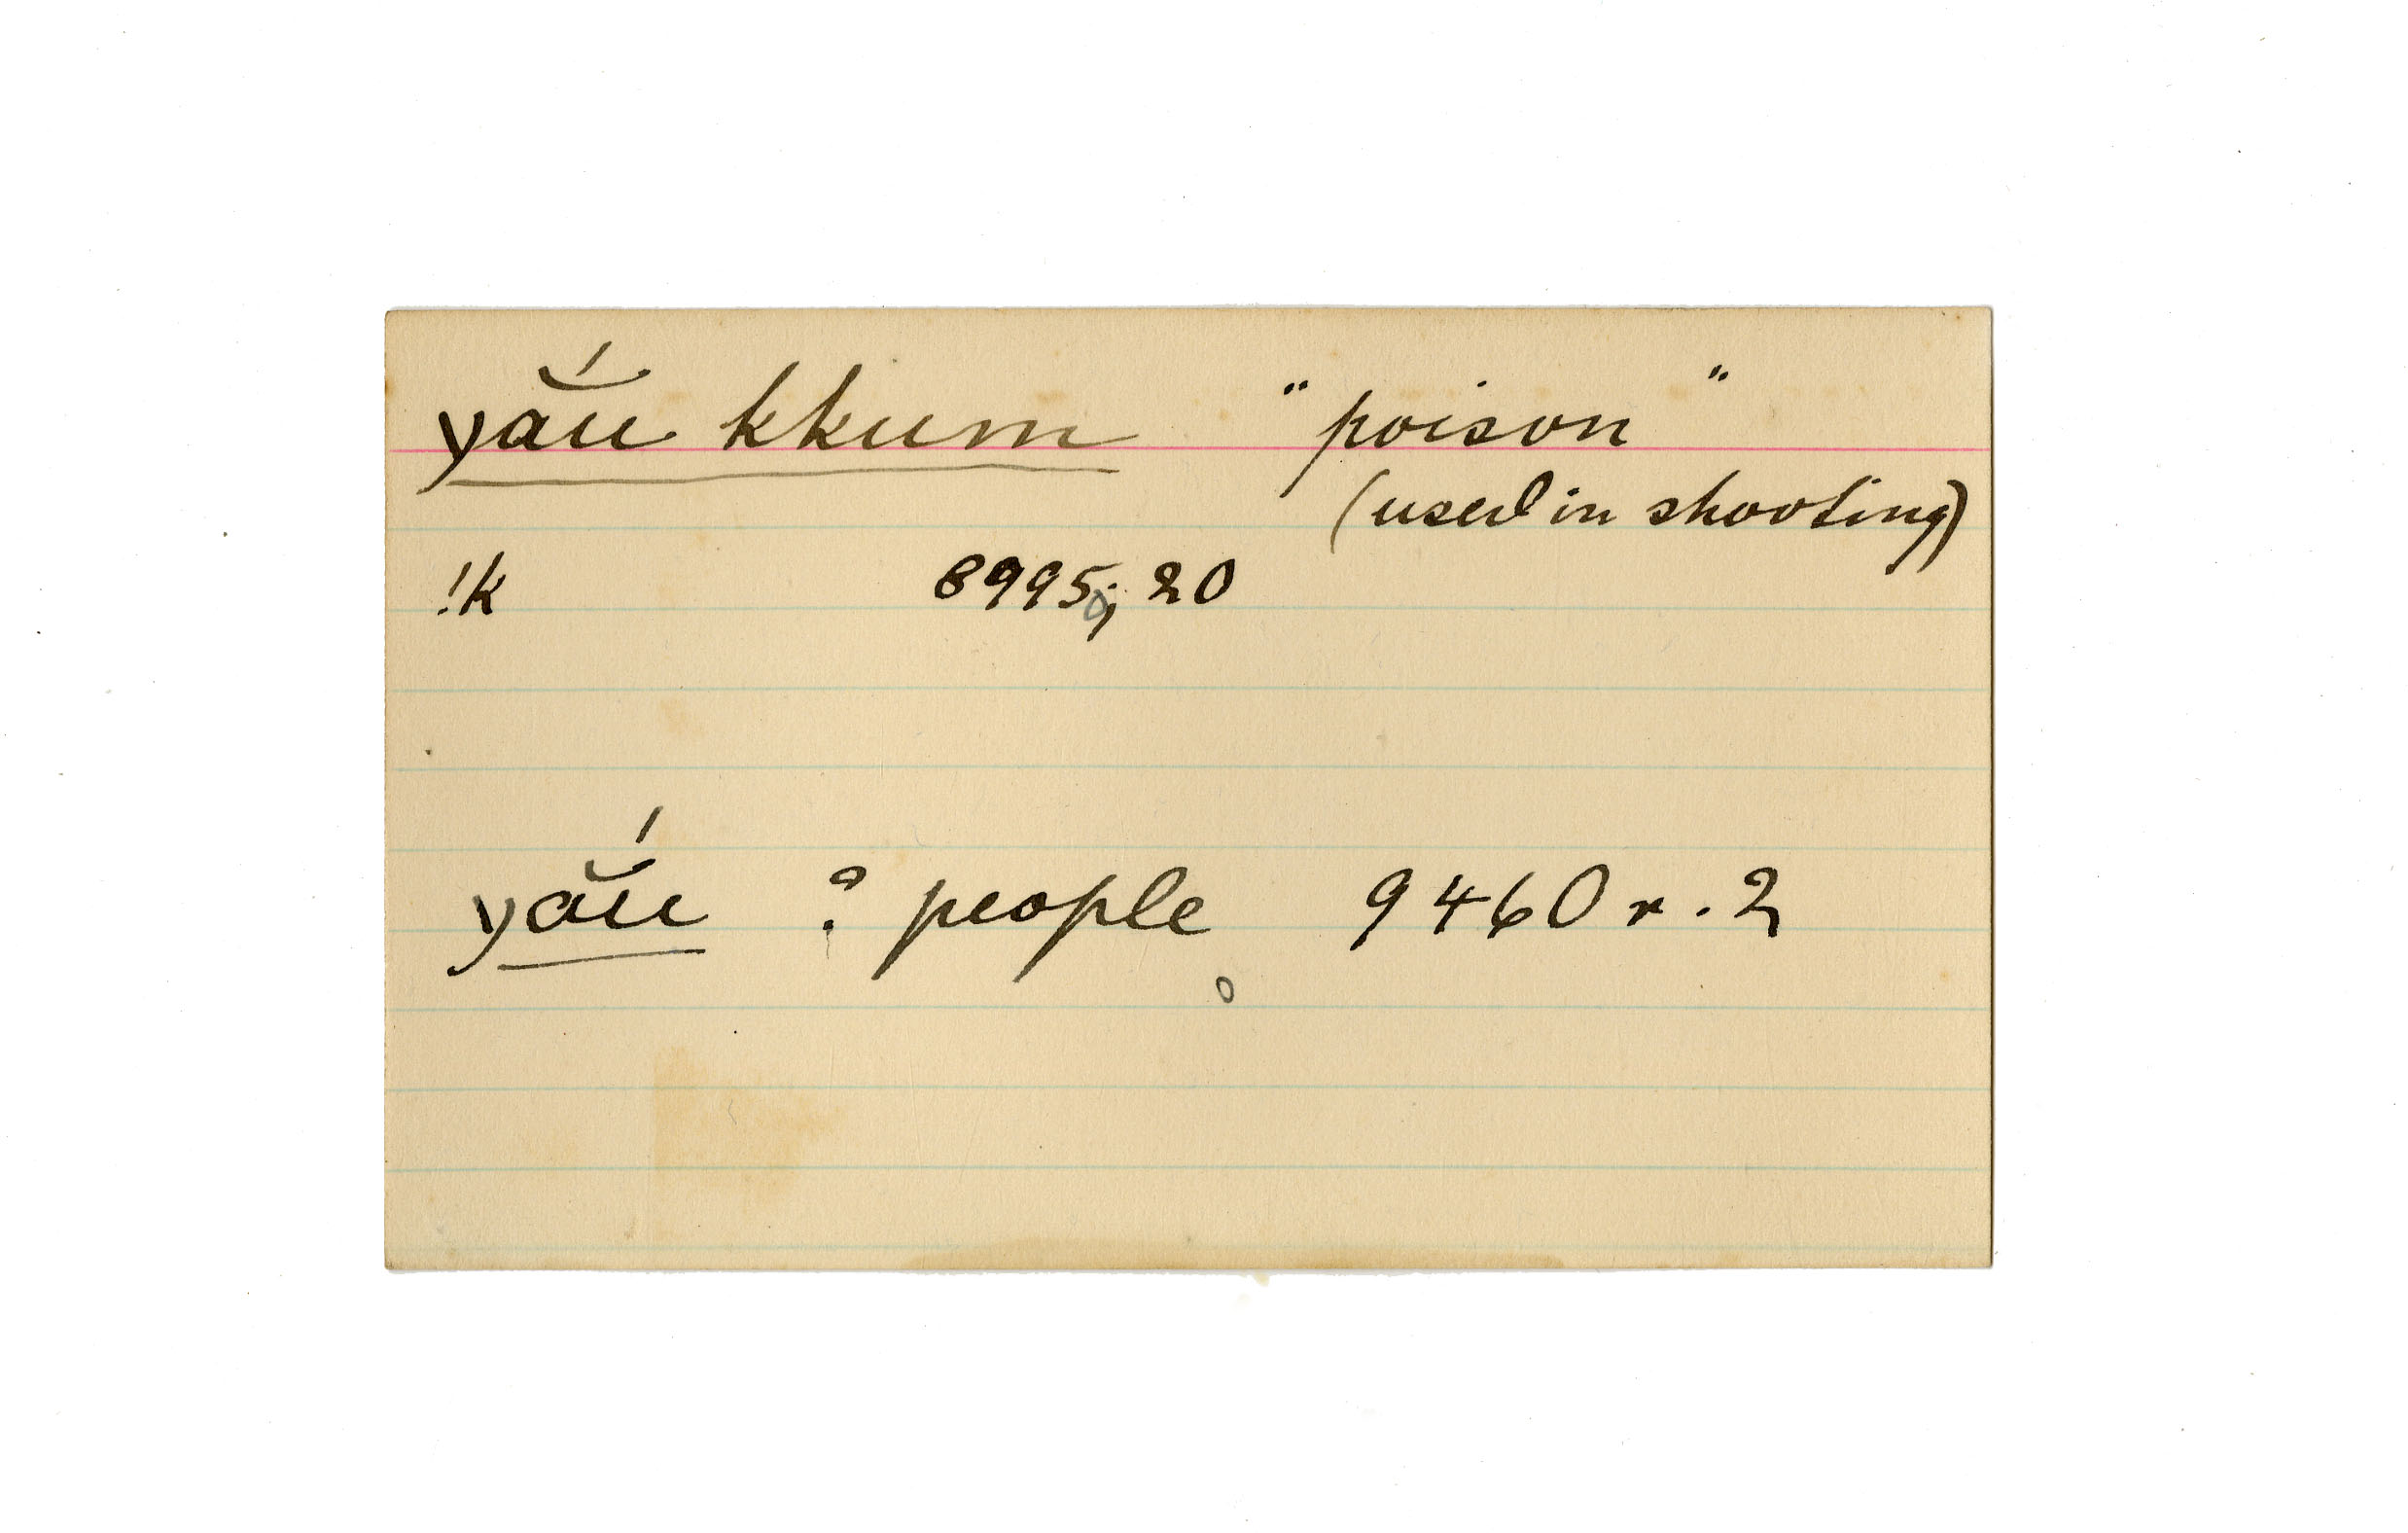 yắu kkum " poison "
(used in shooting)
!k 8995; 20
yắu ? people 9460 r. 2